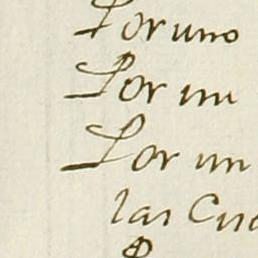 Por uno
Por un
Por un
las Cu